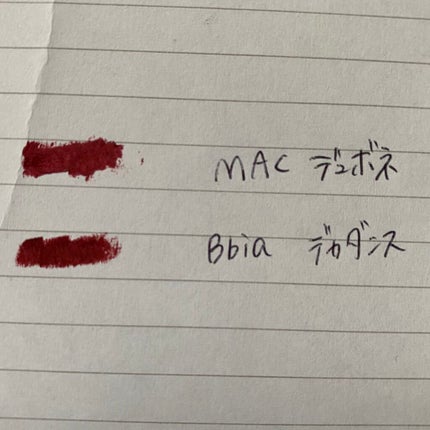 MAC デュボネ
Bbia デカダンス